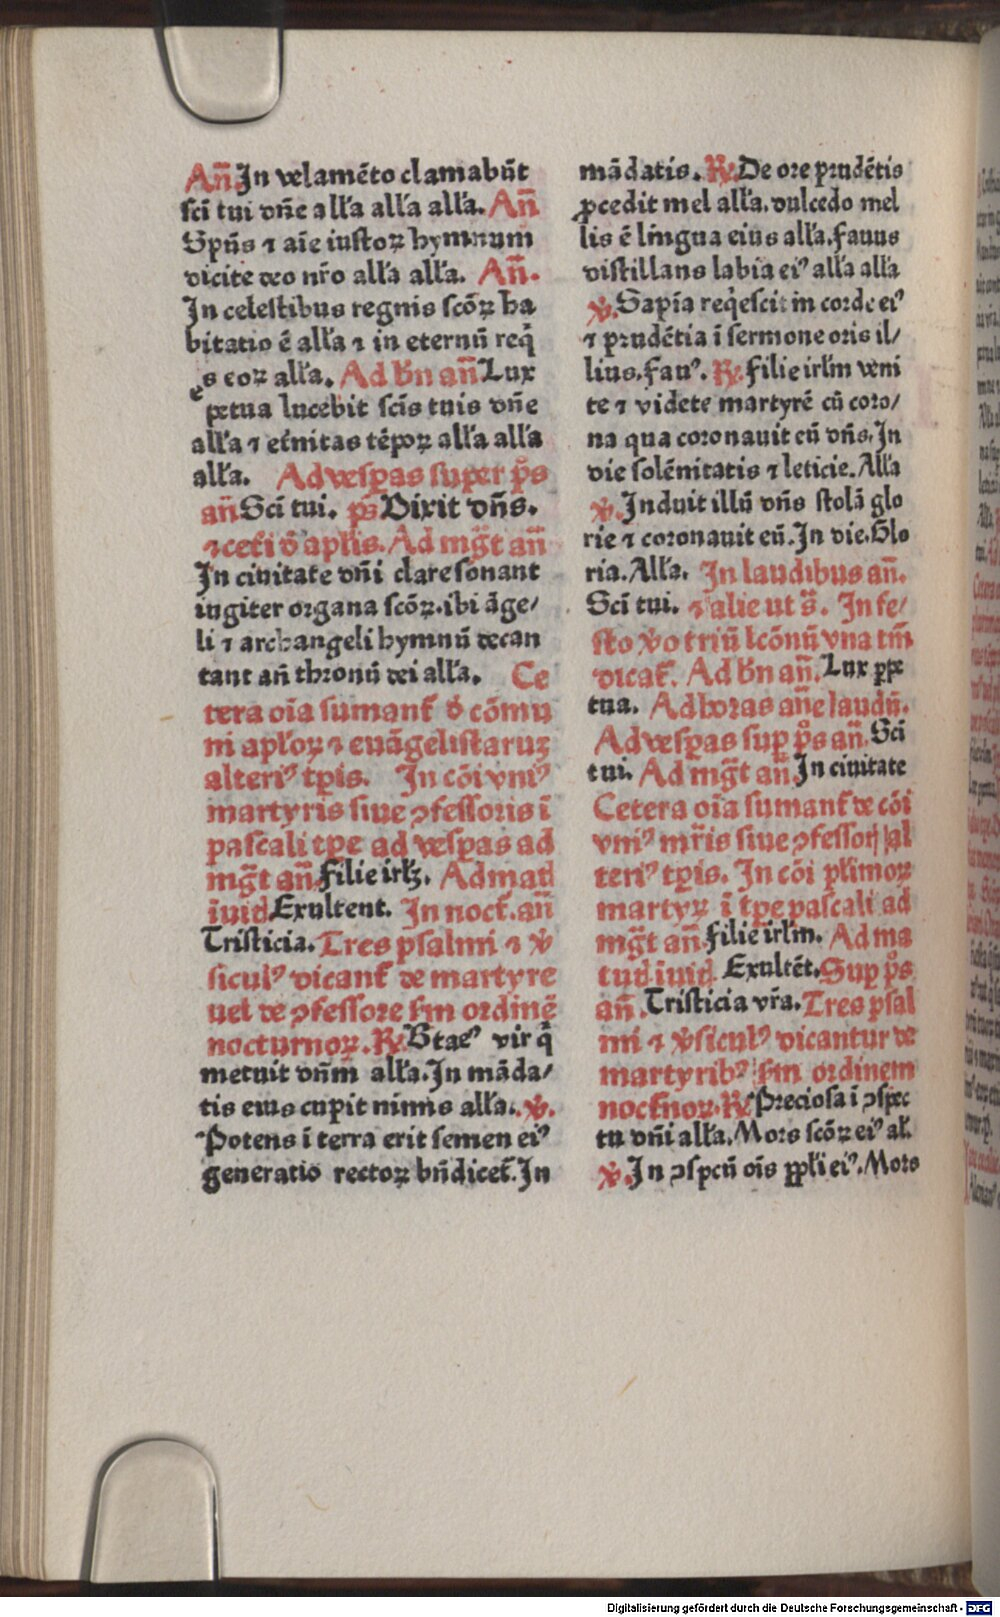 Añ. In velamēto clamabūt
sc̄i tui dn̄e all'a all'a all'a. Añ
Sp̄us ⁊ aīe iustoꝝ hymnum
dicite deo nr̄o all'a all'a. Añ.
In celestibus regnis sc̄oꝝ ha
bitatio ē all'a ⁊ in eternū req̇
es eoꝝ all'a. Ad bn̄ añ Lux
ꝑpetua lucebit sc̄is tuis dn̄e
all'a ⁊ et'nitas tēpoꝝ all'a all'a
all'a. Ad vesꝑas super p̄s
añ Sc̄i tui. ps̄ Dixit dn̄s.
⁊ cet'i d' ap'lis. Ad mḡt añ
In ciuitate dn̄i clare sonant
iugiter organa sc̄oꝝ. ibi āge/
li ⁊ archangeli hymnū decan
tant an̄ thronū dei all'a. Ce
tera oīa sumant' d' cōmu
ni ap'loꝝ ⁊ euāgelistaruꝫ
alteriꝰ tp̄is. In cōi vniꝰ
martyris siue ꝯfessoris ī
pascali tꝑe ad vesꝑas ad
mḡt añ Filie irl'ꝫ. Ad mat
iuit' Exultent. In noct'. añ
Tristicia. Tres psalmi ⁊ ℣
siculꝰ dicant' de martyre
uel de ꝯfessore s'm ordinē
nocturnoꝝ. ℟ Btaeꝰ vir q̇
metuit dn̄m all'a. In māda/
tis eius cupit nimis all'a. ℣.
Potens ī terra erit semen eiꝰ
generatio rectoꝝ bn̄dicet'. In
mādatis. ℟. De ore prudētis
ꝓcedit mel all'a. dulcedo mel
lis ē lingua eius all'a. fauus
distillans labia eiꝰ all'a all'a
℣. Sapīa req̇escit in corde eiꝰ
⁊ prudētia ī sermone oris il/
lius. Fauꝰ. ℟. Filie irl'm veni
te ⁊ videte martyrē cū coro/
na qua coronauit eū dn̄s. In
die solēnitatis ⁊ leticie. All'a
℣. Induit illū dn̄s stolā glo
rie ⁊ coronauit eū. In die. Glo
ria. All'a. In laudibus añ.
Sc̄i tui. ⁊ alie ut s̄. In fe/
sto v'o triū lcōnū vna tm̄
dicat'. Ad bn̄ añ. Lux ꝑpe
tua. Ad horas an̄e laudū.
Ad vesꝑas suꝑ p̄s añ. Sc̄i
tui. Ad mḡt añ In ciuitate
Cetera oīa sumant' de cōi
vniꝰ mr̄is siue ꝯfessorꝭ al
teriꝰ tp̄is. In cōi pl'imoꝝ
martyꝝ ī tꝑe pascali ad
mḡt añ Filie irl'm. Ad ma
tut' iuit' Exultēt. Suꝑ p̄s
añ. Tristicia vr̄a. Tres psal
mi ⁊ ℣siculꝰ dicantur de
martyribꝰ s'm ordinem
noct'noꝝ. ℟ Preciosa ī ꝯspec
tu dn̄i all'a. Mors sc̄oꝝ eiꝰ al'.
℣. In ꝯspcū oīs pp'li eiꝰ. Mors
Digitalisierung gefördert durch die Deutsche Forschungsgemeinschaft - DFG